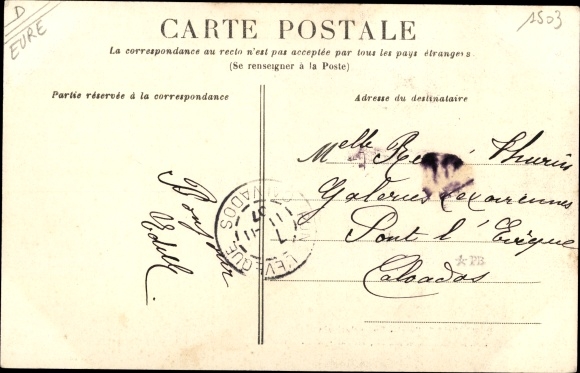 D
EURE
1503
CARTE POSTALE
La correspondance au recto n'est pas acceptée par tous les pays étrangers
(Se renseigner à la Poste)
Partie réservée à la correspondance
Adresse du destinataire
Melle Thurin
Galeries
Pont l'Evêque
Calvados
Bonjour
L'EVEQUE
CALVADOS
PB